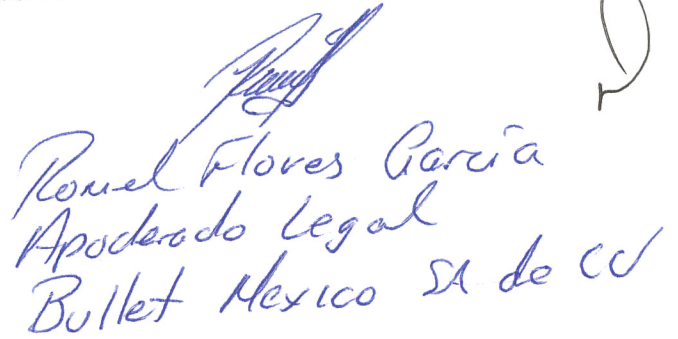 Romel Flores García
Apoderado Legal
Bullet Mexico SA de CV